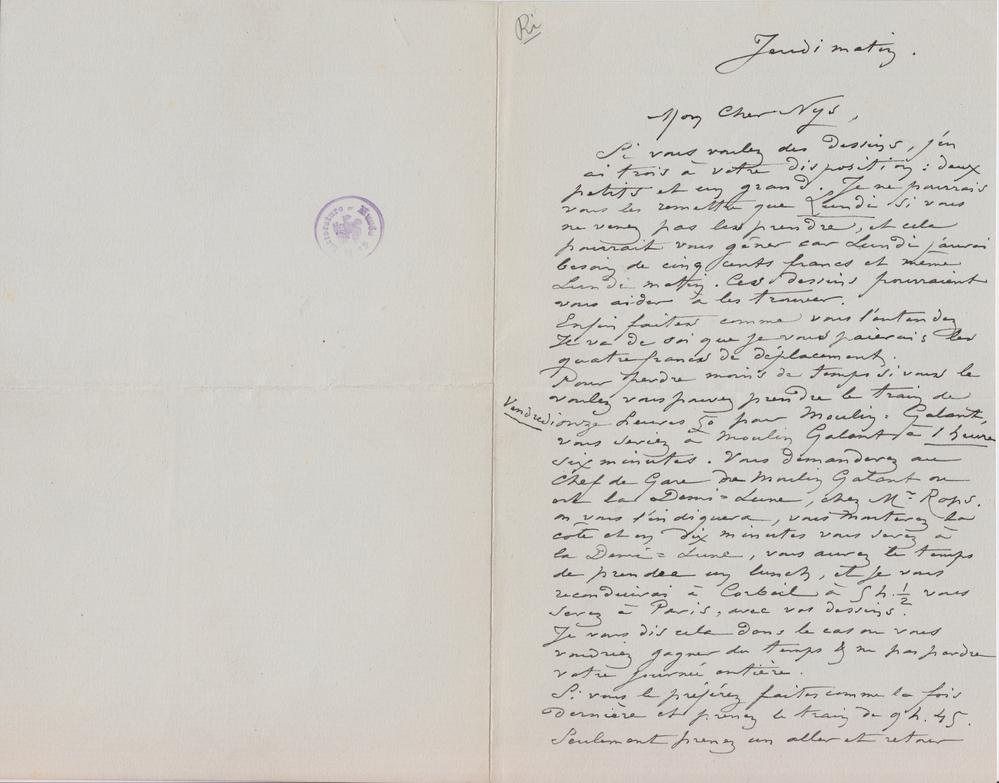 Ri
Jeudi matin.
Mon Cher Nys,
Si vous voulez des dessins, j'en
ai trois à votre disposition : deux
petits et un grand. Je ne pourrais
vous les remettre que Lundi si vous
ne venez pas les prendre, et cela
pourrait vous gêner car Lundi j'aurai
besoin de cinq cents francs et même
Lundi matin. Ces dessins pourraient
vous aider à les trouver.
Enfin faites comme vous l'entendez
Il va de soi que je vous paierais les
quatre francs de déplacement.
Pour perdre moins de temps si vous le
voulez vous pouvez prendre le train de
Vendredi onze heures 50 pour Moulin-Galant,
vous seriez à Moulin Galant à 1 heure
six minutes. Vous demanderez au
Chef de Gare de Moulin Galant ou
est la Demi=Lune, chez Mr Rops.
on vous l'indiquera, vous monterez la
côte et en dix minutes vous serez à
la Demi=Lune, vous aurez le temps
de prendre un lunch, et je vous
reconduirai à Corbeil à 5 h. 1/2 vous
serez à Paris, avec vos dessins.
Je vous dis cela dans le cas ou vous
voudriez gagner du temps & ne pas perdre
votre journée entière.
Si vous le préférez faites comme la fois
dernière et prenez le train de 9 h. 45.
Seulement prenez un aller et retour